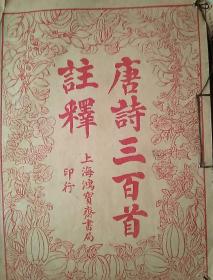 唐詩三百首
註釋
上海鴻寶齋書局
印行